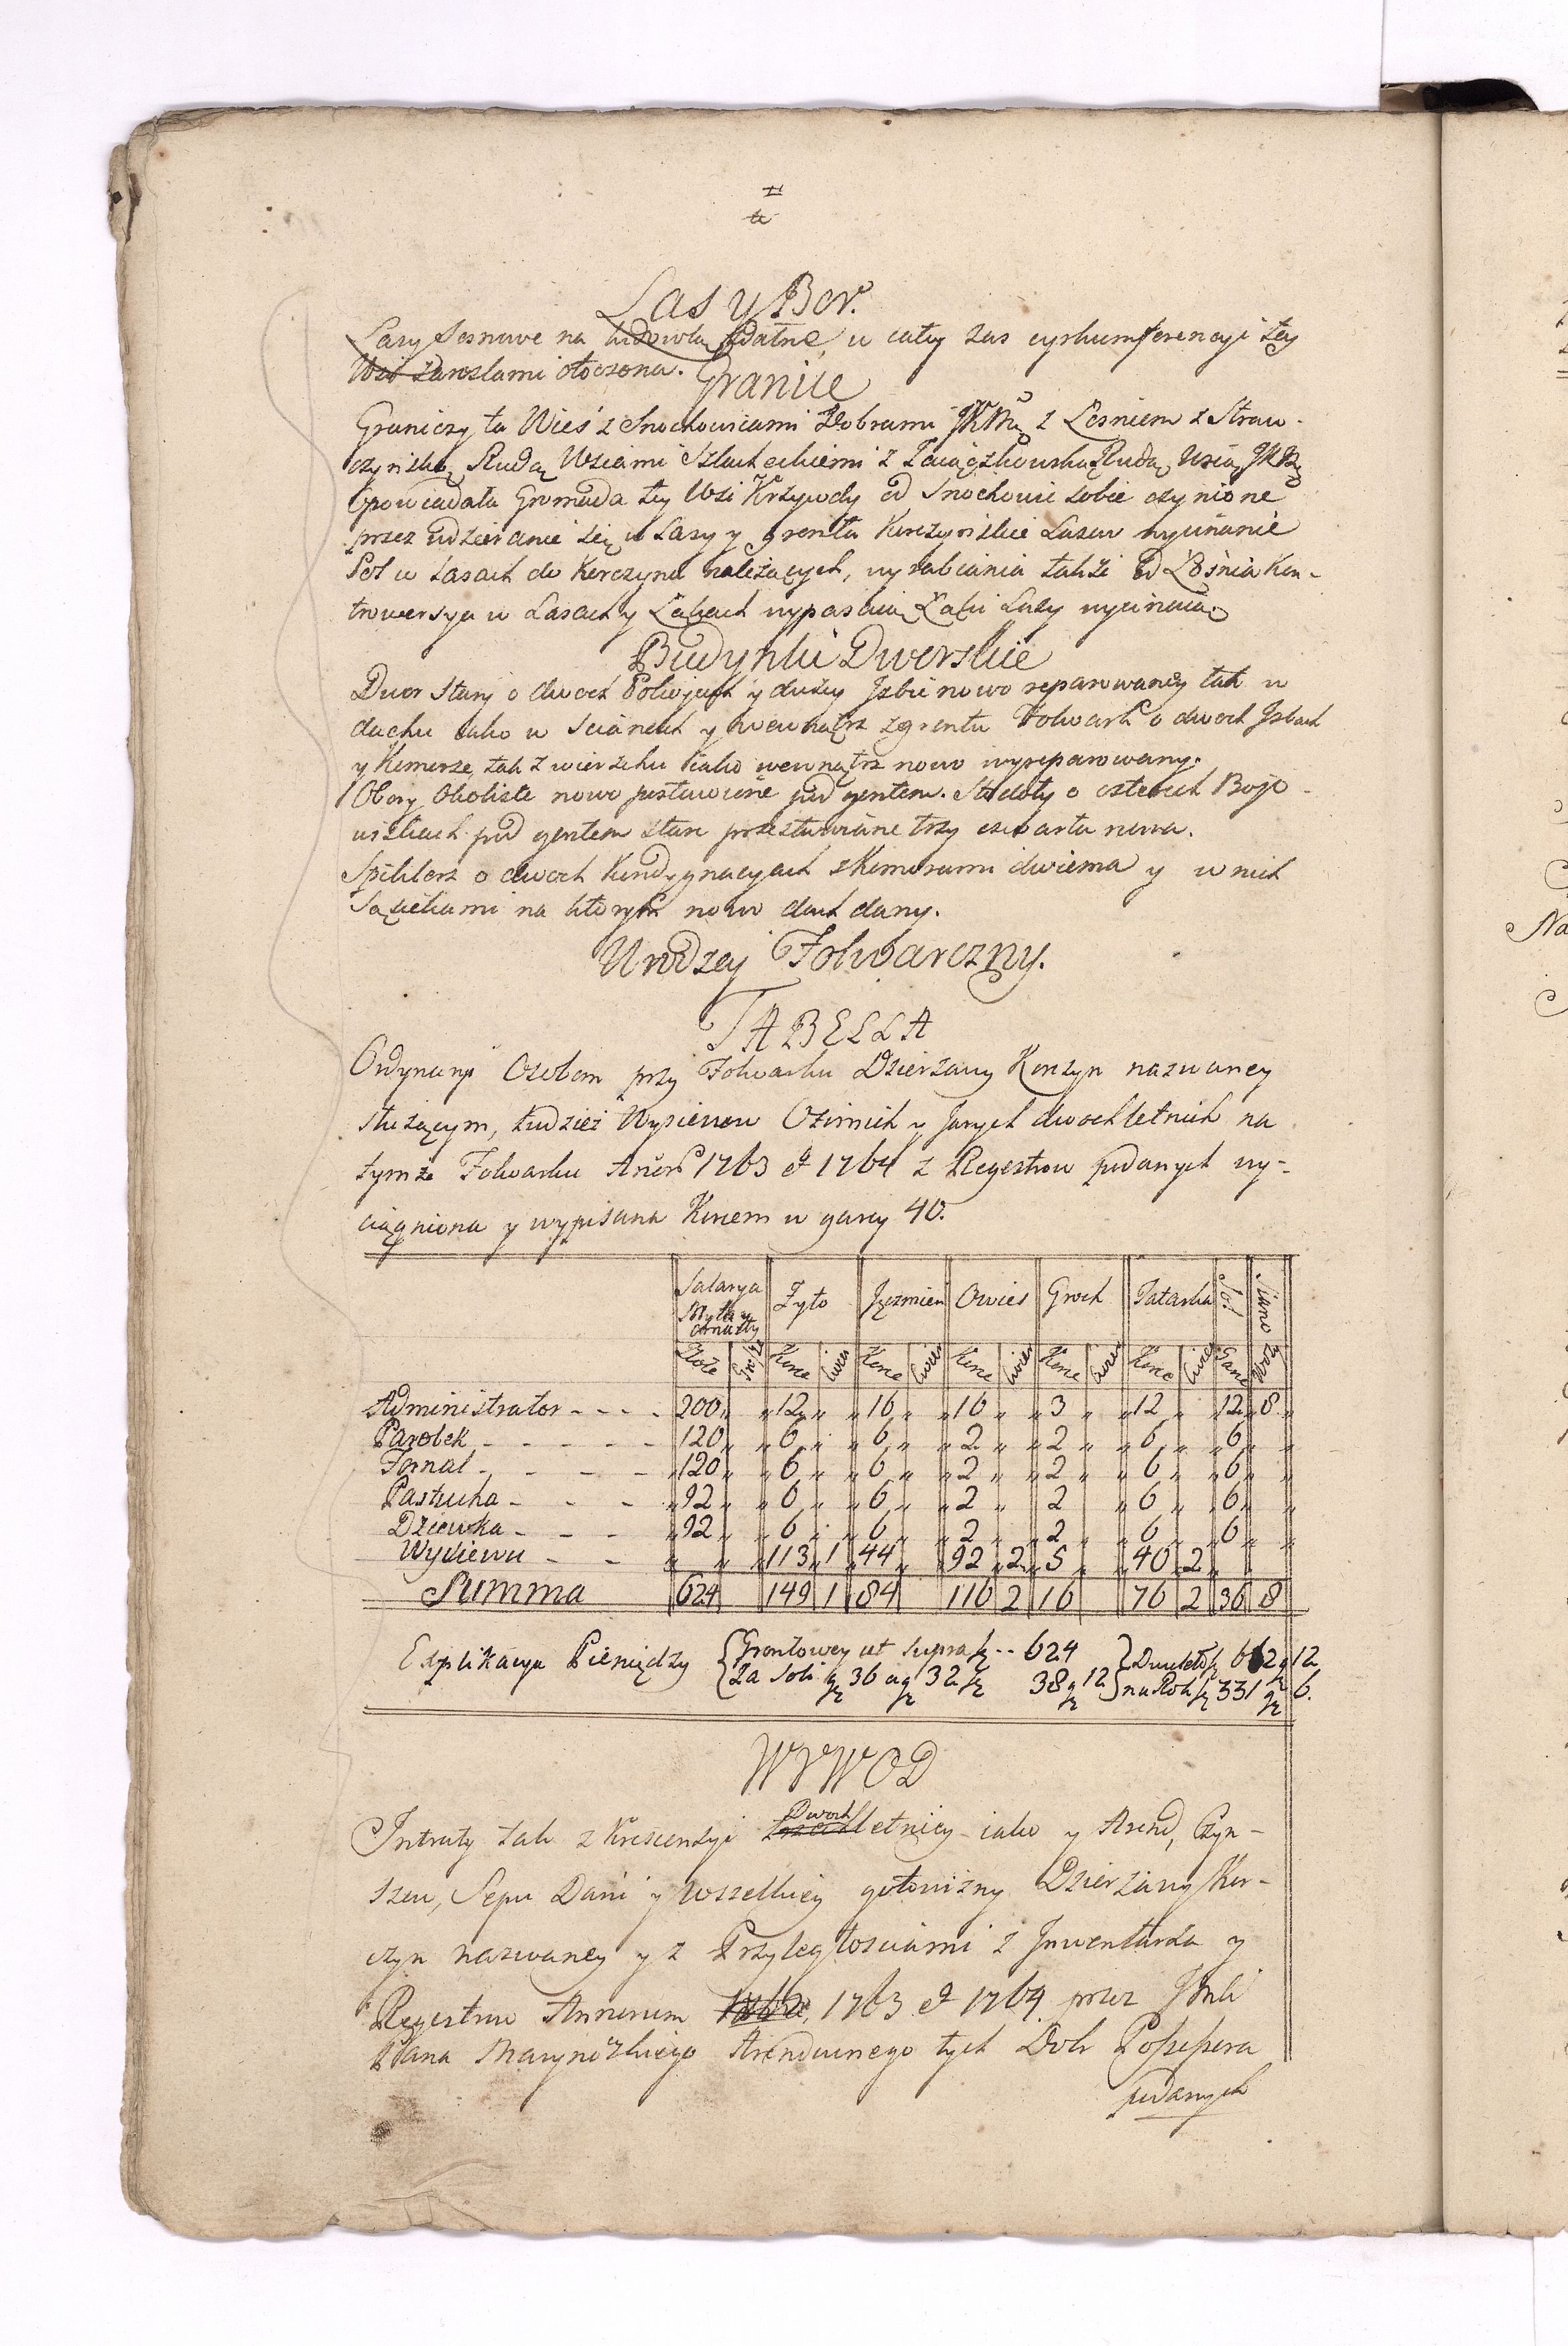 Lasy Bor.
Lasy Sosnowe na budowlą zdatne, w cały zas cyrkumferencyi tey
Wsi zaroslami otoczona.
Granice
Graniczy ta Wieś z Snochowicami Dobrami z Łosniem z Straw-
czyńską Rudą Wsiami Szlacheckiemi z Rudą Wsią
Opowiadała Gromada tey Wsi Krzywdy od Snochowic sobie czynione
przez wdzieranie się w Lasy y grunta Korczyńskie Lasow wycinanie
Pol w Lasach do Korczyna należących, wyrabiania także od Łośnia Kon-
trowersya w Lasach y Łąkach wypasaią Łąki Lasy wycinaią
Budynki Dworskie
Dwor Stary o dwoch Pokojach y dużey Jzbie nowo reparowaney tak w
dachu iako w Scianach y wewnątrz z gruntu Folwark o dwoch Jzbach
y Komorze, tak z wierzchu iako wewnątrz nowo wyreparowany.
Obory Okoliste nowo postawione pod gontem. Stodoły o czterech Bojo-
wiskach pod gontem stare przestawiane trzy czwarta nowa.
Spiklerz o dwoch Kondygnacyach z Komorami dwiema y w nich
Sąsiekami na ktorym nowo dach dany.
Urodzay Folwarczny.
TABELLA
Ordynaryi Osobom przy Folwarku Dzierżawy Korczyn nazwaney
służącym, tudzież Wysiewow Ozimich y Jarych dwochletnich na
tymże Folwarku Anorum 1763 et 1764 z Regestrow podanych wy-
ciągniona y wypisana Korcem w garcy 40.
Salarya Myta y | Zyto | Jęczmień | Owies | Groch | Tatarka | Sol | Siano
Złote | Gro/sze | Korce | Cwier | Korce | Cwier | Korce | Cwier | Korce | Cwier | Korce | Cwier | Garce | Wozy
Administrator - - - - 200 „ 12 „ 16 „ 16 „ 3 „ 12 „ 12 „ 8 „
Parobek - - - - - 120 „ 6 „ 6 „ 2 „ 2 „ 6 „ 6 „ „
Fornal - - - - 120 „ 6 „ 6 „ 2 „ 2 „ 6 „ 6 „ „
Pastucha - - - 92 „ 6 „ 6 „ 2 „ 2 „ 6 „ 6 „ „
Dziewka - - - 92 „ 6 „ 6 „ 2 „ 2 „ 6 „ 6 „ „
Wysiewu - - „ „ 113 1 44 „ 92 2 5 „ 40 2
Summa 624 149 1 84 116 2 16 76 2 36 8
Explikacya Pieniędzy { Grontowey ut supra -- 624 } 662 12
Za Soli 36 a 32 38 12 } na Rok 331 6.
WYWOD
Intraty tak z Krescensyi Dwochletniey iako y Arend, Czyn-
szow, Sepu Dani y wszelkiey gotowizny Dzierżawy Kor-
czyn nazwaney y z Przyległosciami z Jnwentarza y
Regestrow Annorum 1762, 1763 et 1764 przez
Pana Arendownego tych Dobr Possessora
podanych